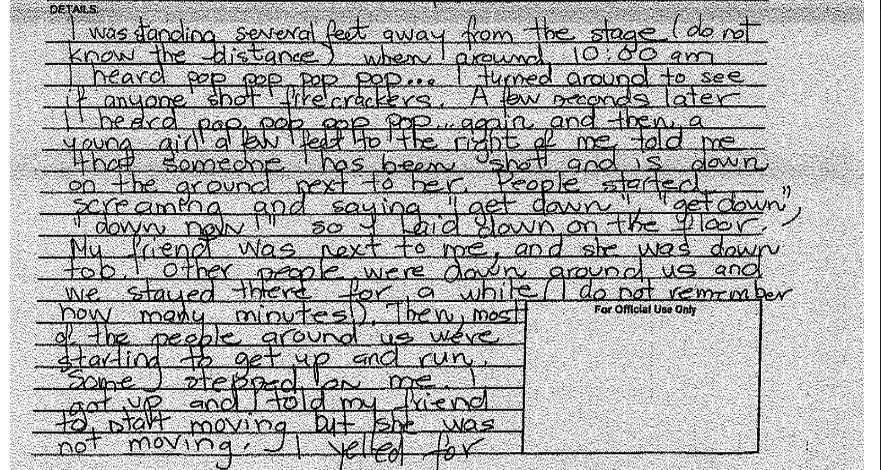 DETAILS:
I was standing several feet away from the stage (do not
know the distance) when around 10:00 am
I heard pop pop pop pop... I turned around to see
if anyone shot firecrackers. A few seconds later
I heard pop pop pop pop... again and then a
young girl a few feet to the right of me told me
that someone has been shot and is down
on the ground next to her. People started
screaming and saying "get down", "get down",
"down now!" so I laid down on the floor.
My friend was next to me, and she was down
too. Other people were down around us and
we stayed there for a while (I do not remember
how many minutes). Then, most
For Official Use Only
of the people around us were
starting to get up and run.
Some stepped on me. I
got up and told my friend
to start moving but she was
not moving. I yelled for